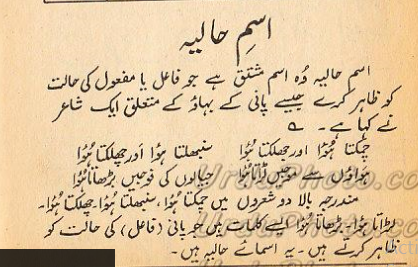 اسمِ حالیہ
اسم حالیہ وُہ اسم مشتق ہے جو فاعل یا مفعول کی حالت
کو ظاہر کرے جیسے پانی کے بہاؤ کے متعلق ایک شاعر
نے کہا ہے۔
چمکتا ہُوا اور جھلکتا ہُوا سنبھلتا ہوُا اور چھلکتا ہُوا
ہواؤں سے موجیں لڑاتا ہُوا حبابوں کی فوجیں بڑھاتا ہُوا
مندرجہ بالا دو شعروں میں چمکتا ہُوا، سنبھلتا ہُوا۔ چھلکتا ہُوا۔
لڑاتا ہُوا۔ بڑھاتا ہُوا ایسے کلمات ہیں جو پانی (فاعل) کی حالت کو
ظاہر کرتے ہیں۔ یہ اسمائے حالیہ ہیں۔